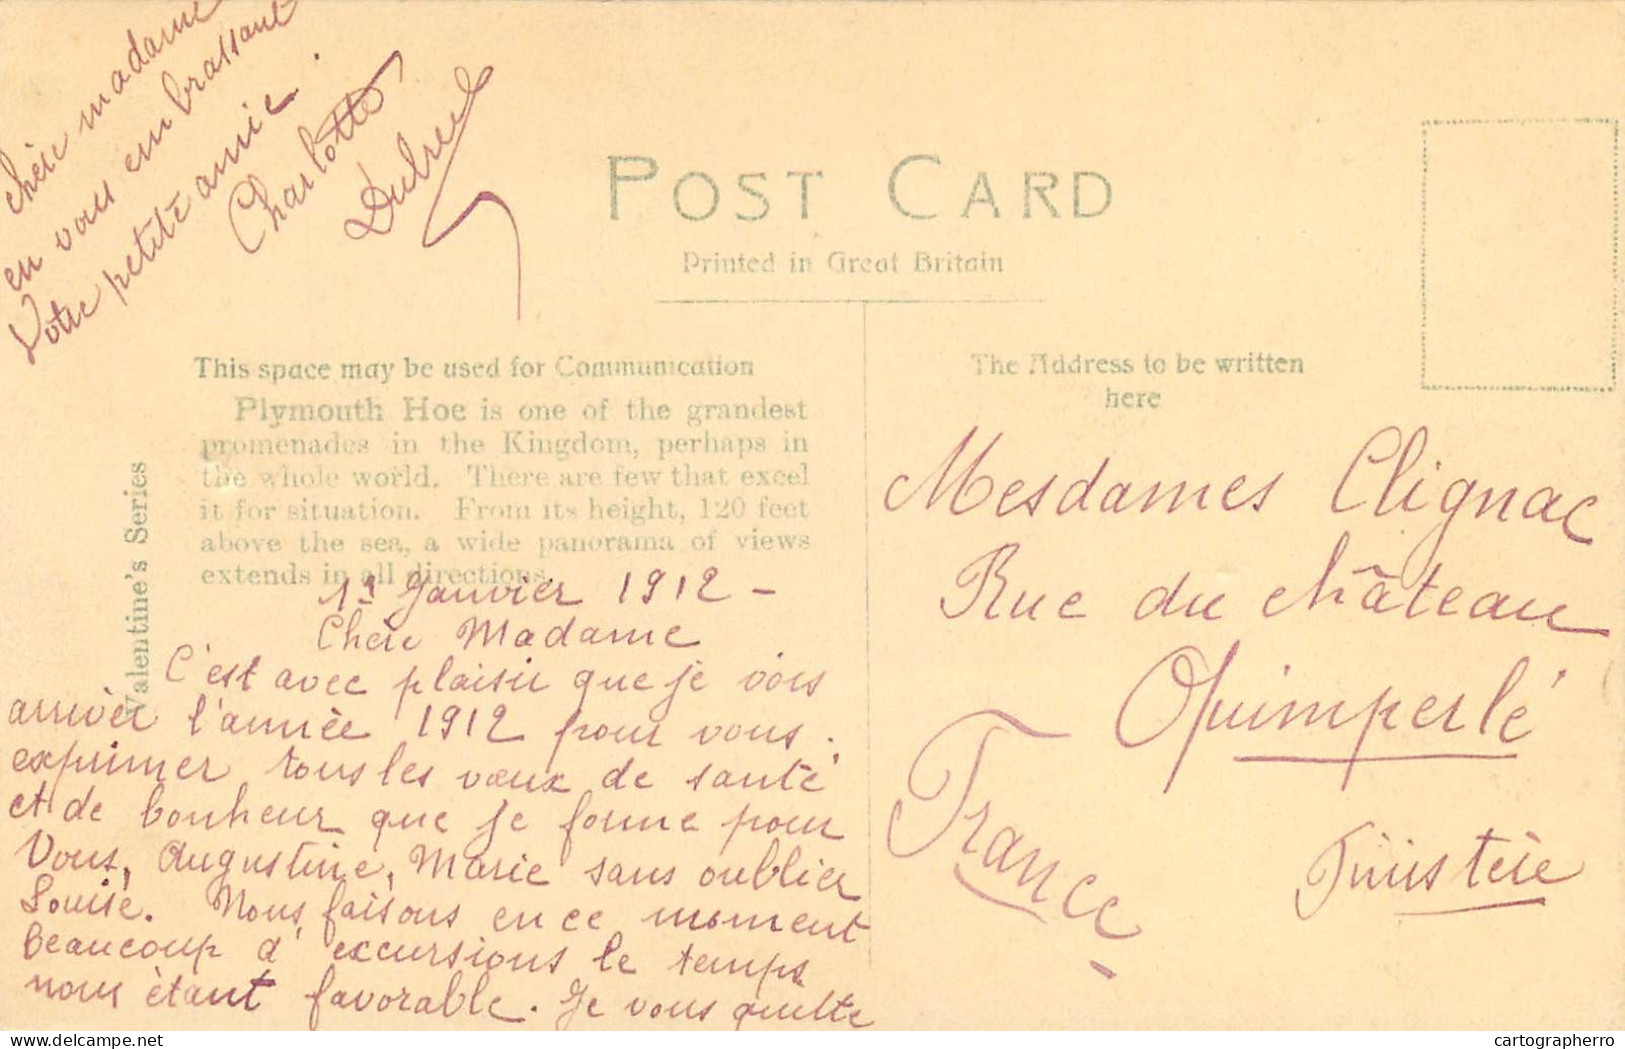 POST CARD
Printed in Great Britain
This space may be used for Communication
Plymouth Hoe is one of the grandest
promenades in the Kingdom, perhaps in
the whole world. There are few that excel
it for situation. From its height, 120 feet
above the sea, a wide panorama of views
extends in all directions.
Valentine's Series
The Address to be written
here
1er Janvier 1912 -
Chère Madame
C'est avec plaisir que je vois
arriver l'année 1912 pour vous
exprimer tous les vœux de santé
et de bonheur que je forme pour
Vous, Augustine, Marie sans oublier
Louise. Nous faisons en ce moment
beaucoup d'excursions le temps
nous étant favorable. Je vous quitte
chère madame
en vous embrassant
Votre petite amie.
Charlotte
Mesdames Clignac
Rue du château
Quimperlé
Finistère
France
Hipshot Media LLP
cartographerro